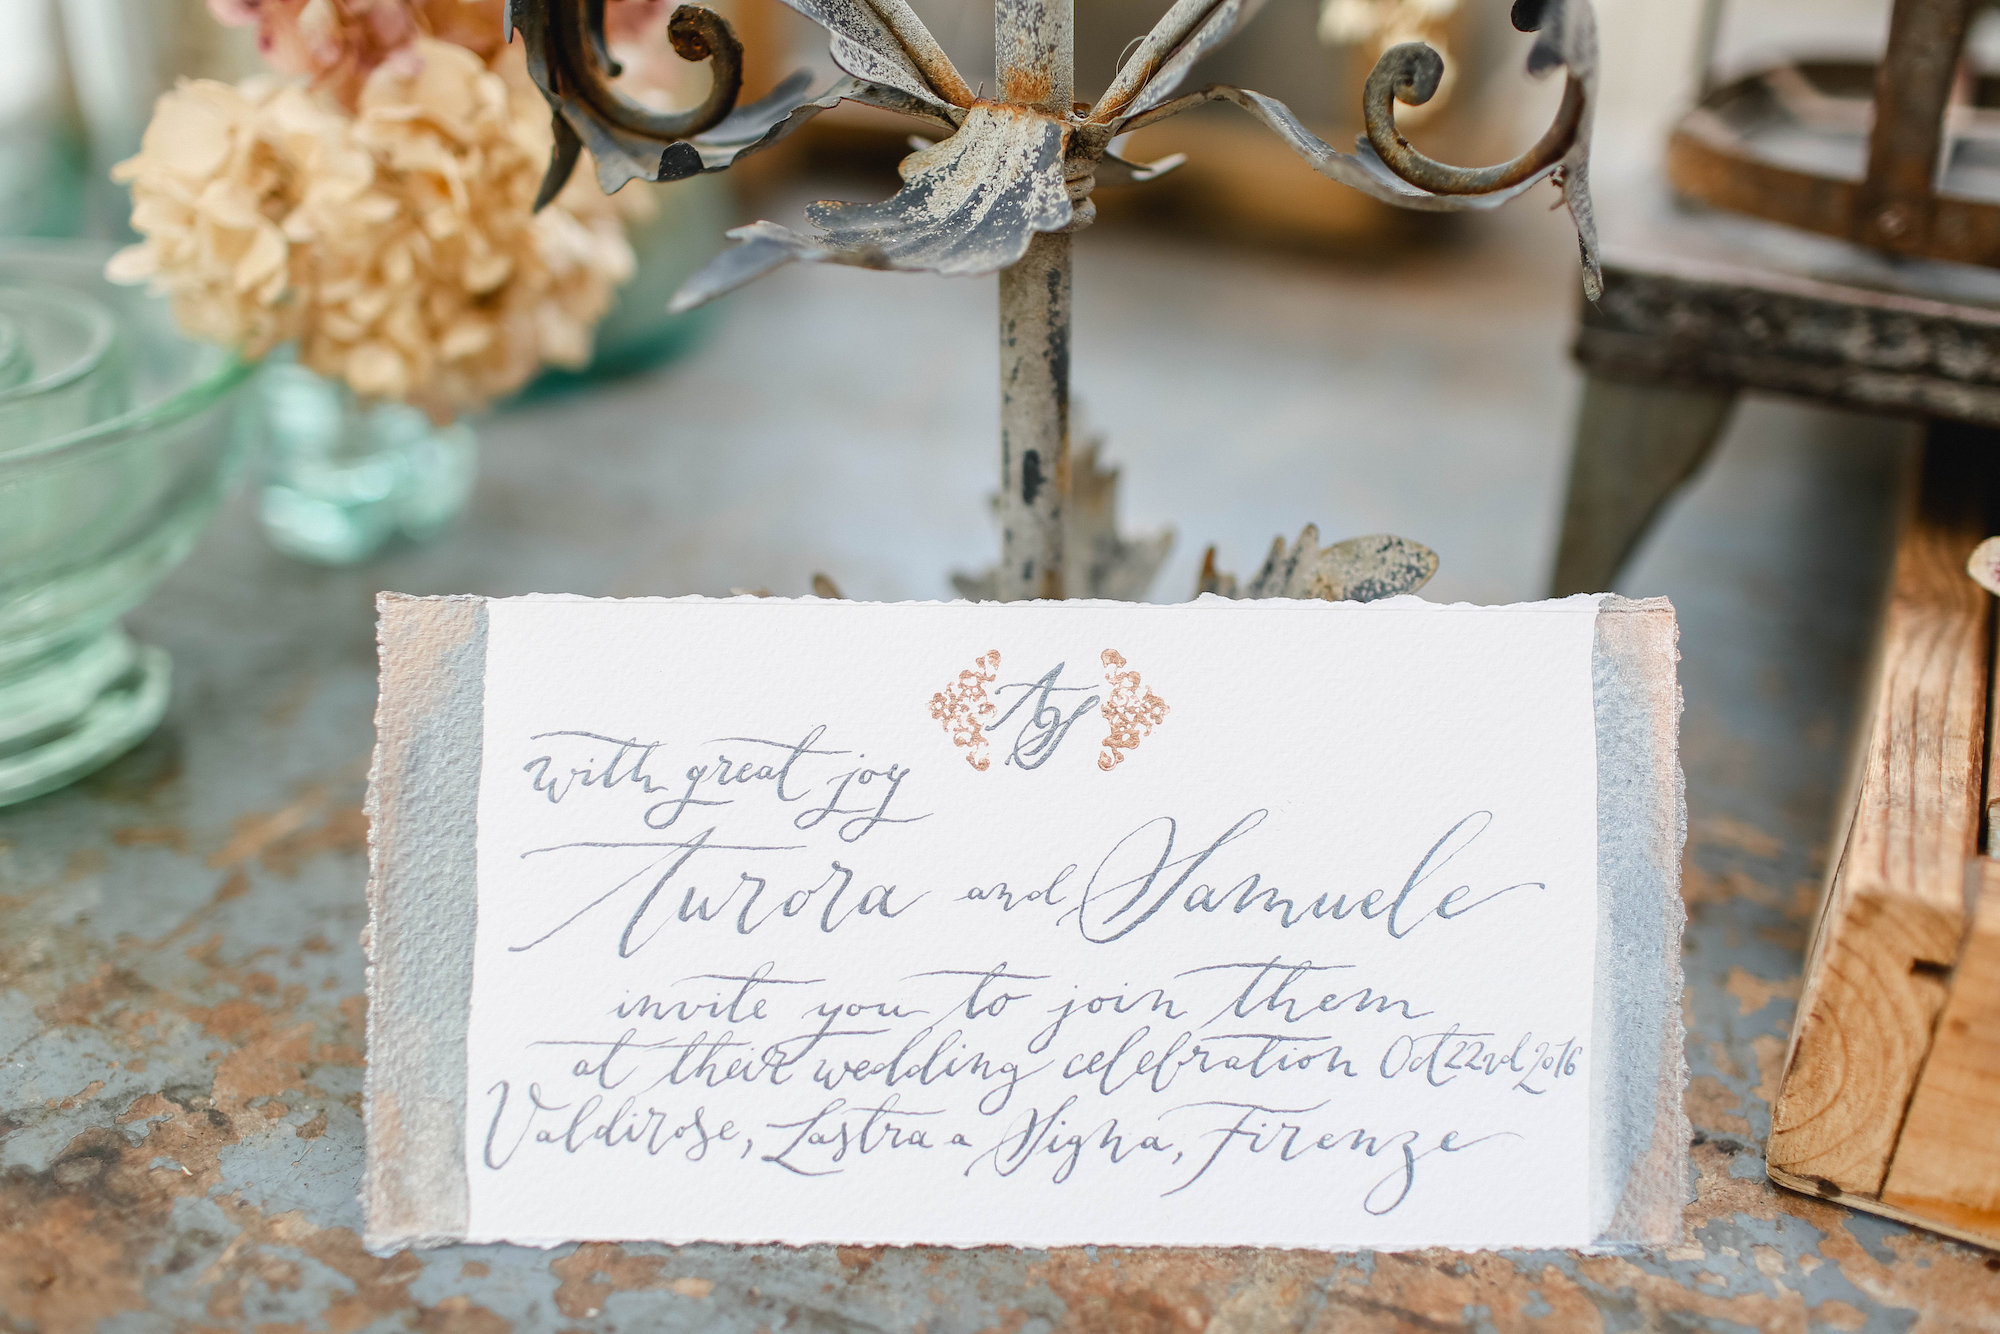 AS
with great joy
Aurora and Samuele
invite you to join them
at their wedding celebration Oct 22nd 2016
Valdirose, Lastra a Signa, Firenze